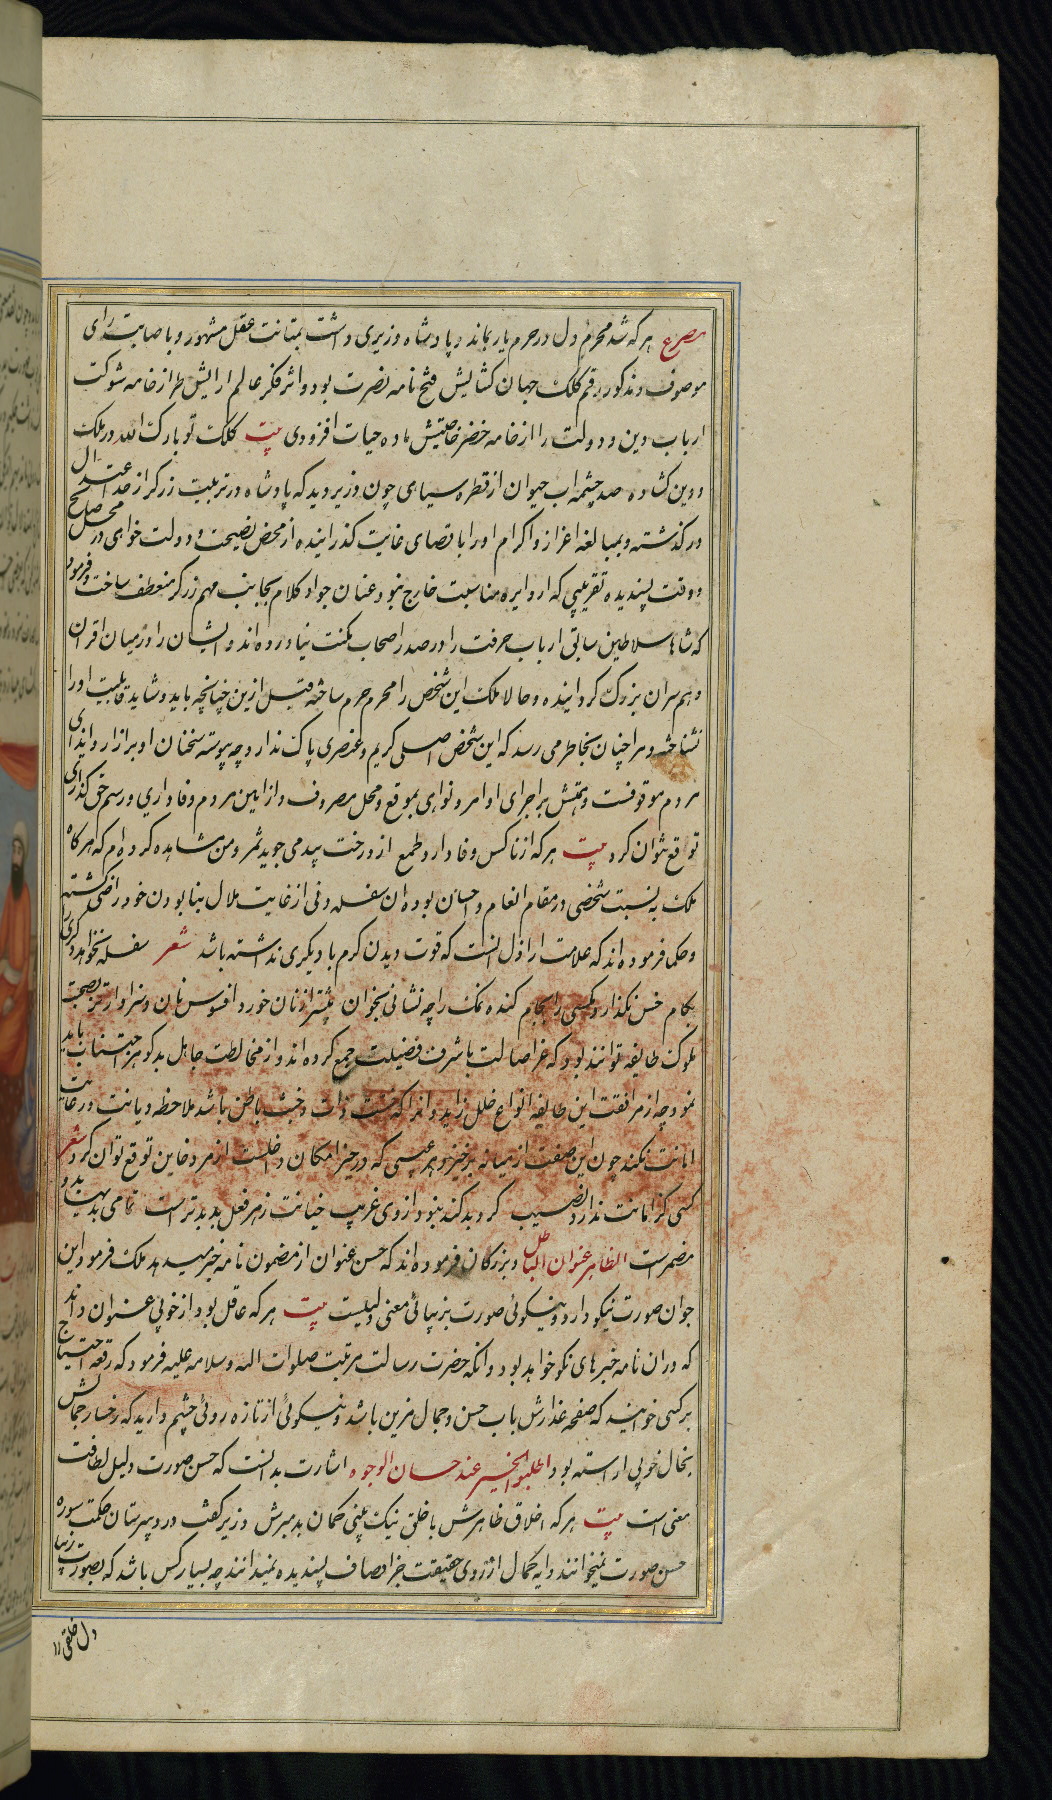 مصرع هر که شد محرم دل در حرم یار بماند و پادشاه وزیری داشت بمتانت عقل مشهور و باصابت رای
موصوف و مذکور رقم کلک جهان کشایش فتح نامه نصرت بود و اثر فکر عالم ارایش طراز خامه شوکت
ارباب دین و دولت را از خامه خضر خاصیتش ماده حیات افزودی بیت کلک تو بارک الله در ملک
و دین کشاده صد چشمه اب حیوان از قطره سیاهی چون وزیر دید که پادشاه در تربیت زرکر از حد اعتدال
در کذشته و بمبالغه اعزاز و اکرام او را باقصای غایت کذرانیده از محض نصیحت و دولت خواهی در محل صالح
و وقت پسندیده تقریبی که از دایره مناسبت خارج نبود عنان جواد کلام بجانب مهم زرکر منعطف ساخت و فرمود
که شاها سلاطین سابق ارباب حرفت را در صدر اصحاب مکنت نیاورده اند و ایشان را در میان اقران
و همسران بزرک کردانیده و حالا ملک این شخص را محرم حرم ساخته قبل ازین چنانچه باید و شاید قابلیت او را
نشناخته و مرا چنان بخاطر می رسد که این شخص اصلی کریم و عنصری پاک ندارد چه پیوسته سخنان او بر ازار و ایذای
مردم موقوفست و همتش بر اجرای اوامر و نواهی بموقع و محل مصروف و از ایین مردم وفاداری و رسم حق کذاری
توقع نتوان کرد بیت هر که از ناکس وفا دارد طمع از درخت بید می جوید ثمر و من مشاهده کرده ام که هر کاه
ملک به نسبت شخصی در مقام انعام و احسان بوده ان سفله دنی از غایت ملال بنابودن خود راضی کشته
و حکما فرموده اند که علامت اراذل انست که قوت دیدن کرم با دیکری نداشته باشد شعر سفله نخواهد دکری را
بکام خس نکذارد مکسی را بجام کنده نمک را چه نشانی بخوان بیشتر از نان خورد افسوس نان و سزاوار تر بصحبت
ملوک طایفه توانند بود که عز اصالت با شرف فضیلت جمع کرده اند و از مخالطت جاهل بدکوهر اجتناب باید
نمود چه از مرافقت این طایفه انواع خلل زاید و انرا که خست ذات و خبث باطن باشد ملاحظه دیانت و رعایت
امانت نکند چون این صفت از میانه برخیزد هر عیبی که در حیز امکان داخلست از مرد خاین توقع توان کرد شعر
کسی کز امانت ندارد نصیب کرد بد کند نبود از وی غریب خیانت ز هر فعل بد بدتر است تمامی بدیهات بدو
مضمرست الظاهر عنوان الباطن و بزرکان فرموده اند که حسن عنوان از مضمون نامه خبر میدهد ملک فرمود این
جوان صورت نیکو دارد و نیکوئی صورت بزیبائی معنی دلیلست بیت هر که عاقل بود از خوبی عنوان داند
که دران نامه خبرهای نکو خواهد بود و انکه حضرت رسالت مرتبت صلوات الله و سلامه علیه فرمود که رقعه احتیاج
بر کسی خوانید که صفحه عذارش باب حسن و جمال مزین باشد و نیکوئی از تازه روئی چشم دارید که رخسار جمالش
بخال خوبی اراسته بود اطلبوا الخیر عند حسان الوجوه اشارت بدانست که حسن صورت دلیل لطافت
معنی است بیت هر که اخلاق ظاهرش با خلق نیک بینی کمان بد مبرش وزیر کفت در دبیرستان حکمت سوره
حسن صورت نمیخوانند و ایه کمال از روی حقیقت جز اوصاف پسندیده نمیدانند چه بسیار کس باشد که بصورت زیبا
دل خلقی